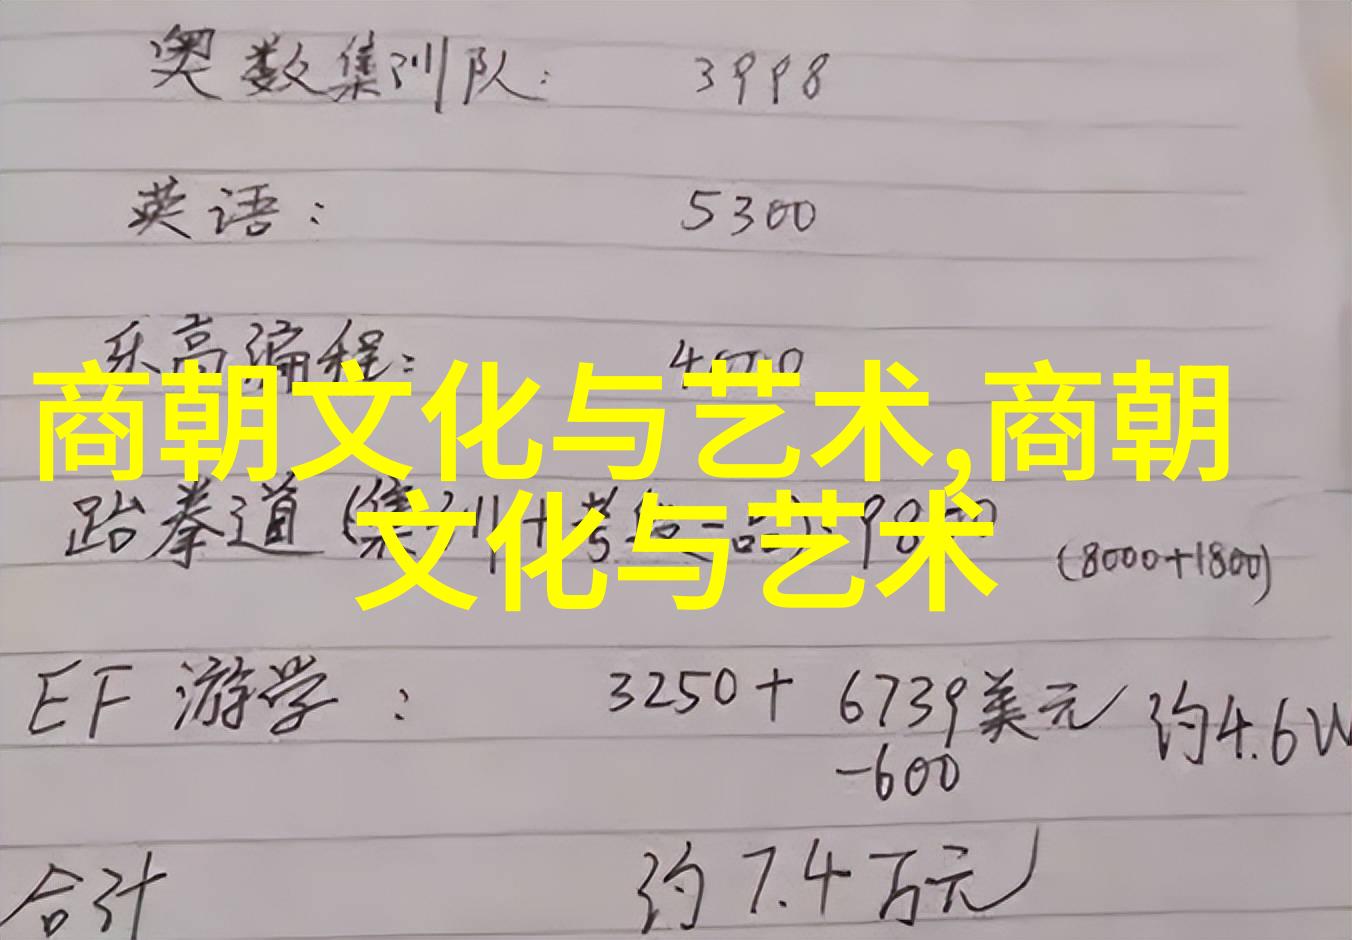 奥数集训队: 3998
英语: 5300
乐高编程: 4000
商朝文化与艺术,商朝
文化与艺术
跆拳道(集训+考级一品): 9800 (8000+1800)
EF 游学: 3250+6739美元 约4.6W
-600
合计 约7.4万元